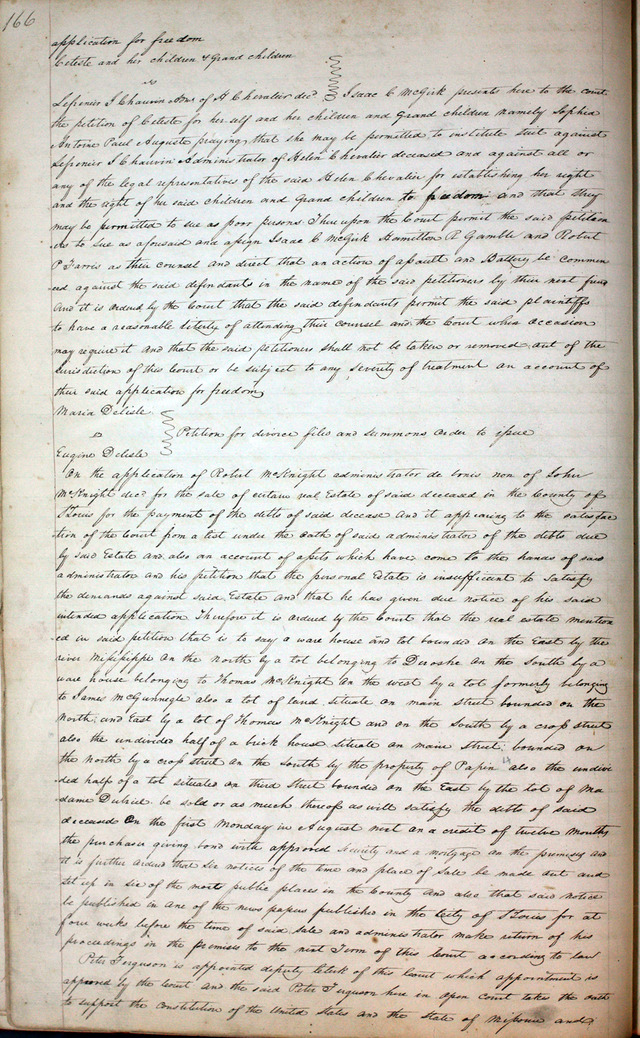 166
application for freedom
Celeste and her children & Grand children
vs
Lefrenier J Chauvin Admr of H Chevalier decd Isaac C McGirk presents here to the court
the petition of Celeste for her self and her children and Grand children namely Sophia
Antoine Paul Auguste praying that she may be permitted to institute Suit against
Lefrenier J Chauvin Administrator of Helen Chevalier deceased and against all or
any of the legal representatives of the said Helen Chevalier for establishing her right
and the right of her said children and Grand children to freedom and that they
may be permitted to sue as poor persons Thereupon the Court permit the said petition
ers to sue as aforesaid and assign Isaac C McGirk Hamilton R Gamble and Robert
P Farris as their counsel and direct that an action of assault and Battery be commen
ced against the said defendants in the name of the said petitioners by their next friend
And it is ordered by the Court that the said defendants permit the said plaintiffs
to have a reasonable liberty of attending their counsel and the Court when occasion
may require it And that the said petitioners shall not be taken or removed out of the
Jurisdiction of this Court or be subject to any severity of treatment on account of
their said application for freedom
Maria Delisle
vs Petition for divorce files and summons order to issue
Eugene Delisle
On the application of Robert McKnight administrator de bonis non of John
McKnight decd for the sale of certain real Estate of said deceased in the County of
St Louis for the payment of the debts of said decease And it appearing to the satisfac
tion of the Court from a list under the oath of said administrator of the debts due
by said Estate and also an account of assets which have come to the hands of said
administrator and his petition that the personal Estate is insufficient to satisfy
the demands against said Estate and that he has given due notice of his said
intended application Therefore it is ordered by the Court that the real estate mention
ed in said petition that is to say a ware house and lot bounded on the East by the
river Mississippi on the North by a lot belonging to on the South by a
ware house belonging to Thomas McKnight on the west by a lot formerly belonging
to James McGunnegle also a lot of land situate on main street bounded on the
North and East by a lot of Thomas McKnight and on the South by a cross street
also the undivided half of a brick house situate on main street bounded on
the North by a cross street on the South by the property of Papin also the undivi
ded half of a lot situated on third Street bounded on the East by the lot of Ma
dame be sold or as much thereof as will satisfy the debts of said
deceased On the first Monday in August next on a credit of twelve Months
the purchaser giving bond with approved security and a mortgage on the premises And
it is further ordered that six notices of the time and place of Sale be made out and
set up in six of the most public places in the County and also that said notice
be published in one of the news papers published in the City of St Louis for at
four weeks before the time of said sale and administrator make return of his
proceedings in the premises to the next Term of this Court according to law
Peter Ferguson is appointed deputy Clerk of this Court which appointment is
approved by the Court And the said Peter Ferguson here in open Court takes the oath
to support the Constitution of the United States and the State of Missouri and